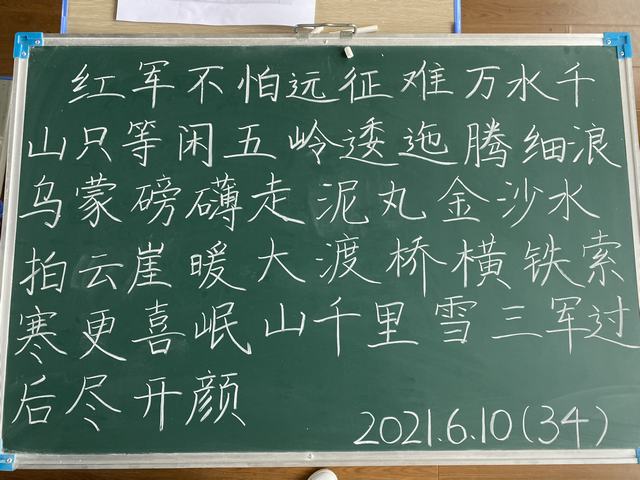 红军不怕远征难万水千
山只等闲五岭逶迤腾细浪
乌蒙磅礴走泥丸金沙水
拍云崖暖大渡桥横铁索
寒更喜岷山千里雪三军过
后尽开颜
2021.6.10(34)